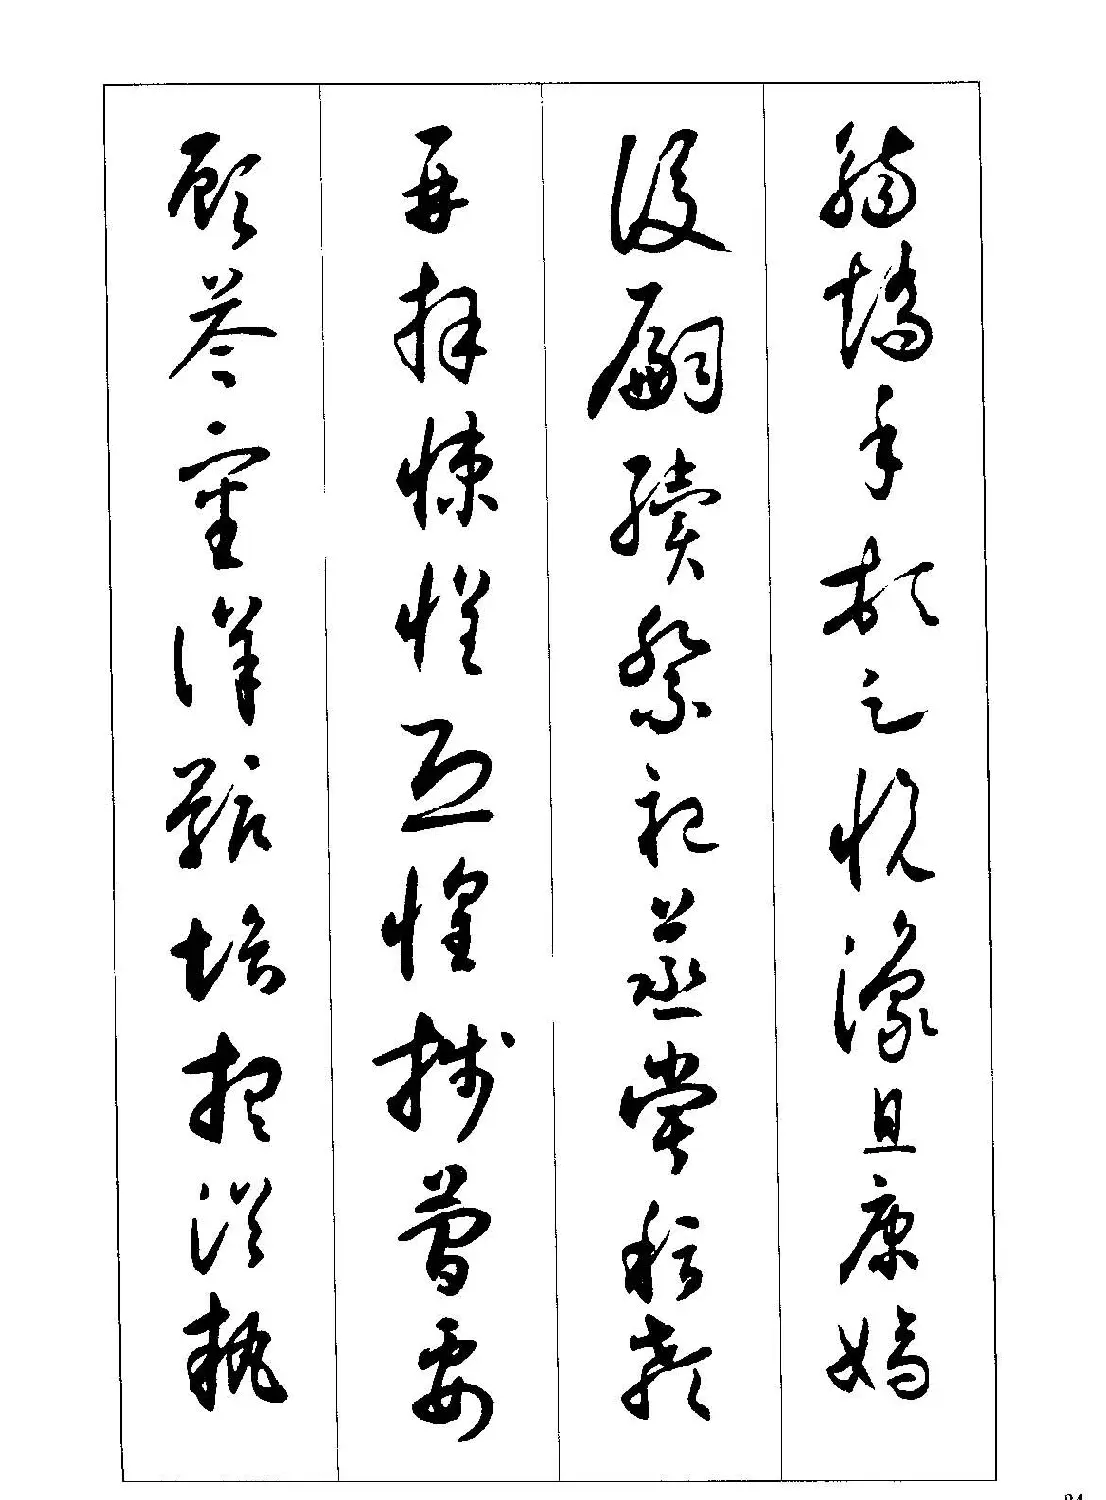 觴矯手頓足悅豫且康嫡
後嗣續祭祀蒸嘗稽顙
再拜悚懼恐惶牋簡要
顧答審詳骸垢想浴執